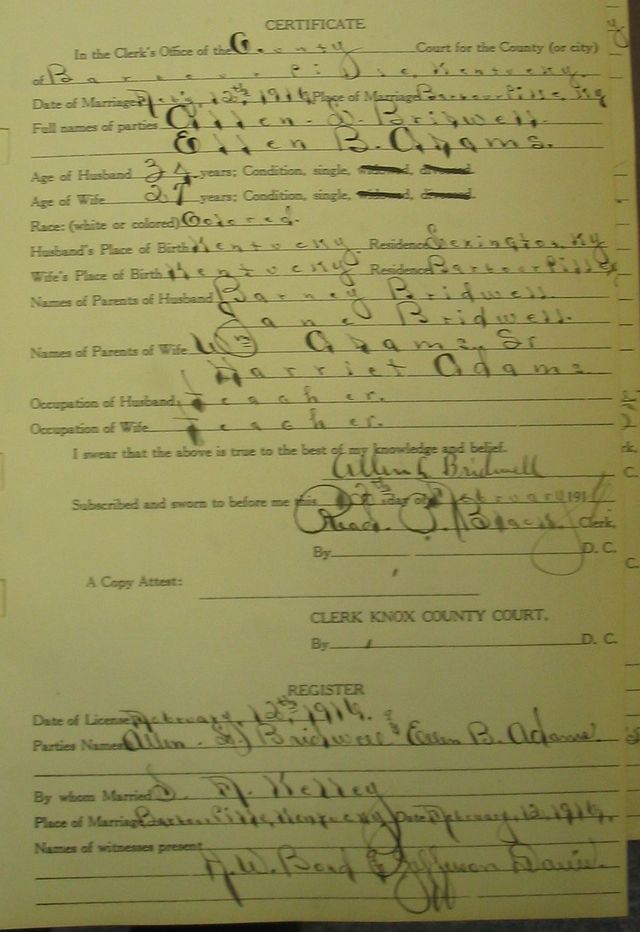 CERTIFICATE
In the Clerk's Office of the County Court for the County (or city)
of Barbourville, Kentucky.
Date of Marriage Feb'y, 12th, 1916, Place of Marriage Barbourville, Ky
Full names of parties Allen. L. Bridwell.
Ellen B. Adams.
Age of Husband 34 years; Condition, single, widowed, divorced
Age of Wife 27 years; Condition, single, widowed, divorced.
Race: (white or colored) Colored.
Husband's Place of Birth Kentucky Residence Lexington, Ky
Wife's Place of Birth Kentucky Residence Barbourville
Names of Parents of Husband Barney Bridwell.
Jane Bridwell.
Names of Parents of Wife Wm Adams, Sr
Harriet Adams
Occupation of Husband: Teacher.
Occupation of Wife Teacher.
I swear that the above is true to the best of my knowledge and belief.
Allen L Bridwell
Subscribed and sworn to before me this 12th day of February 191
Read P. Black Clerk,
By D. C.
A Copy Attest:
CLERK KNOX COUNTY COURT,
By D. C.
REGISTER
Date of License February, 12th, 1916.
Parties Names Allen. L. Bridwell & Ellen B. Adams.
By whom Married Kelley
Place of Marriage Barbourville, Kentucky Date February, 12, 1916,
Names of witnesses present
H. W. Bond & Jefferson Davis.